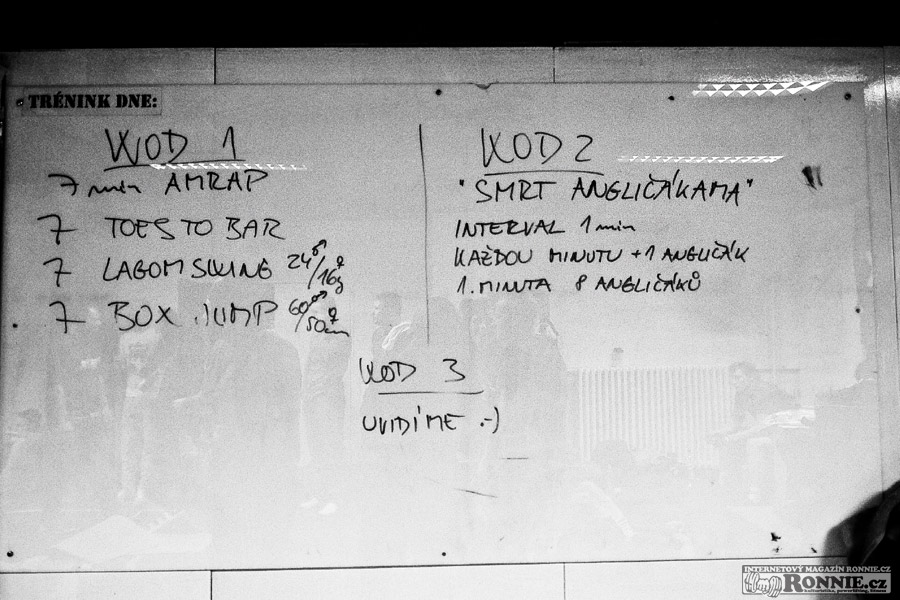 TRÉNINK DNE:
WOD 1
7 min AMRAP
7 TOES TO BAR
7 LAGOM SWING 24♂/16♀g
7 BOX JUMP 60♂/50♀cm
WOD 2
"SMRT ANGLIČÁKAMA"
INTERVAL 1 min
KAŽDOU MINUTU +1 ANGLIČÁK
1. MINUTA 8 ANGLIČÁKŮ
WOD 3
UVIDÍME :-)
INTERNETOVÝ MAGAZÍN RONNIE.CZ
RONNIE.cz
kulturistika, powerlifting, fitness